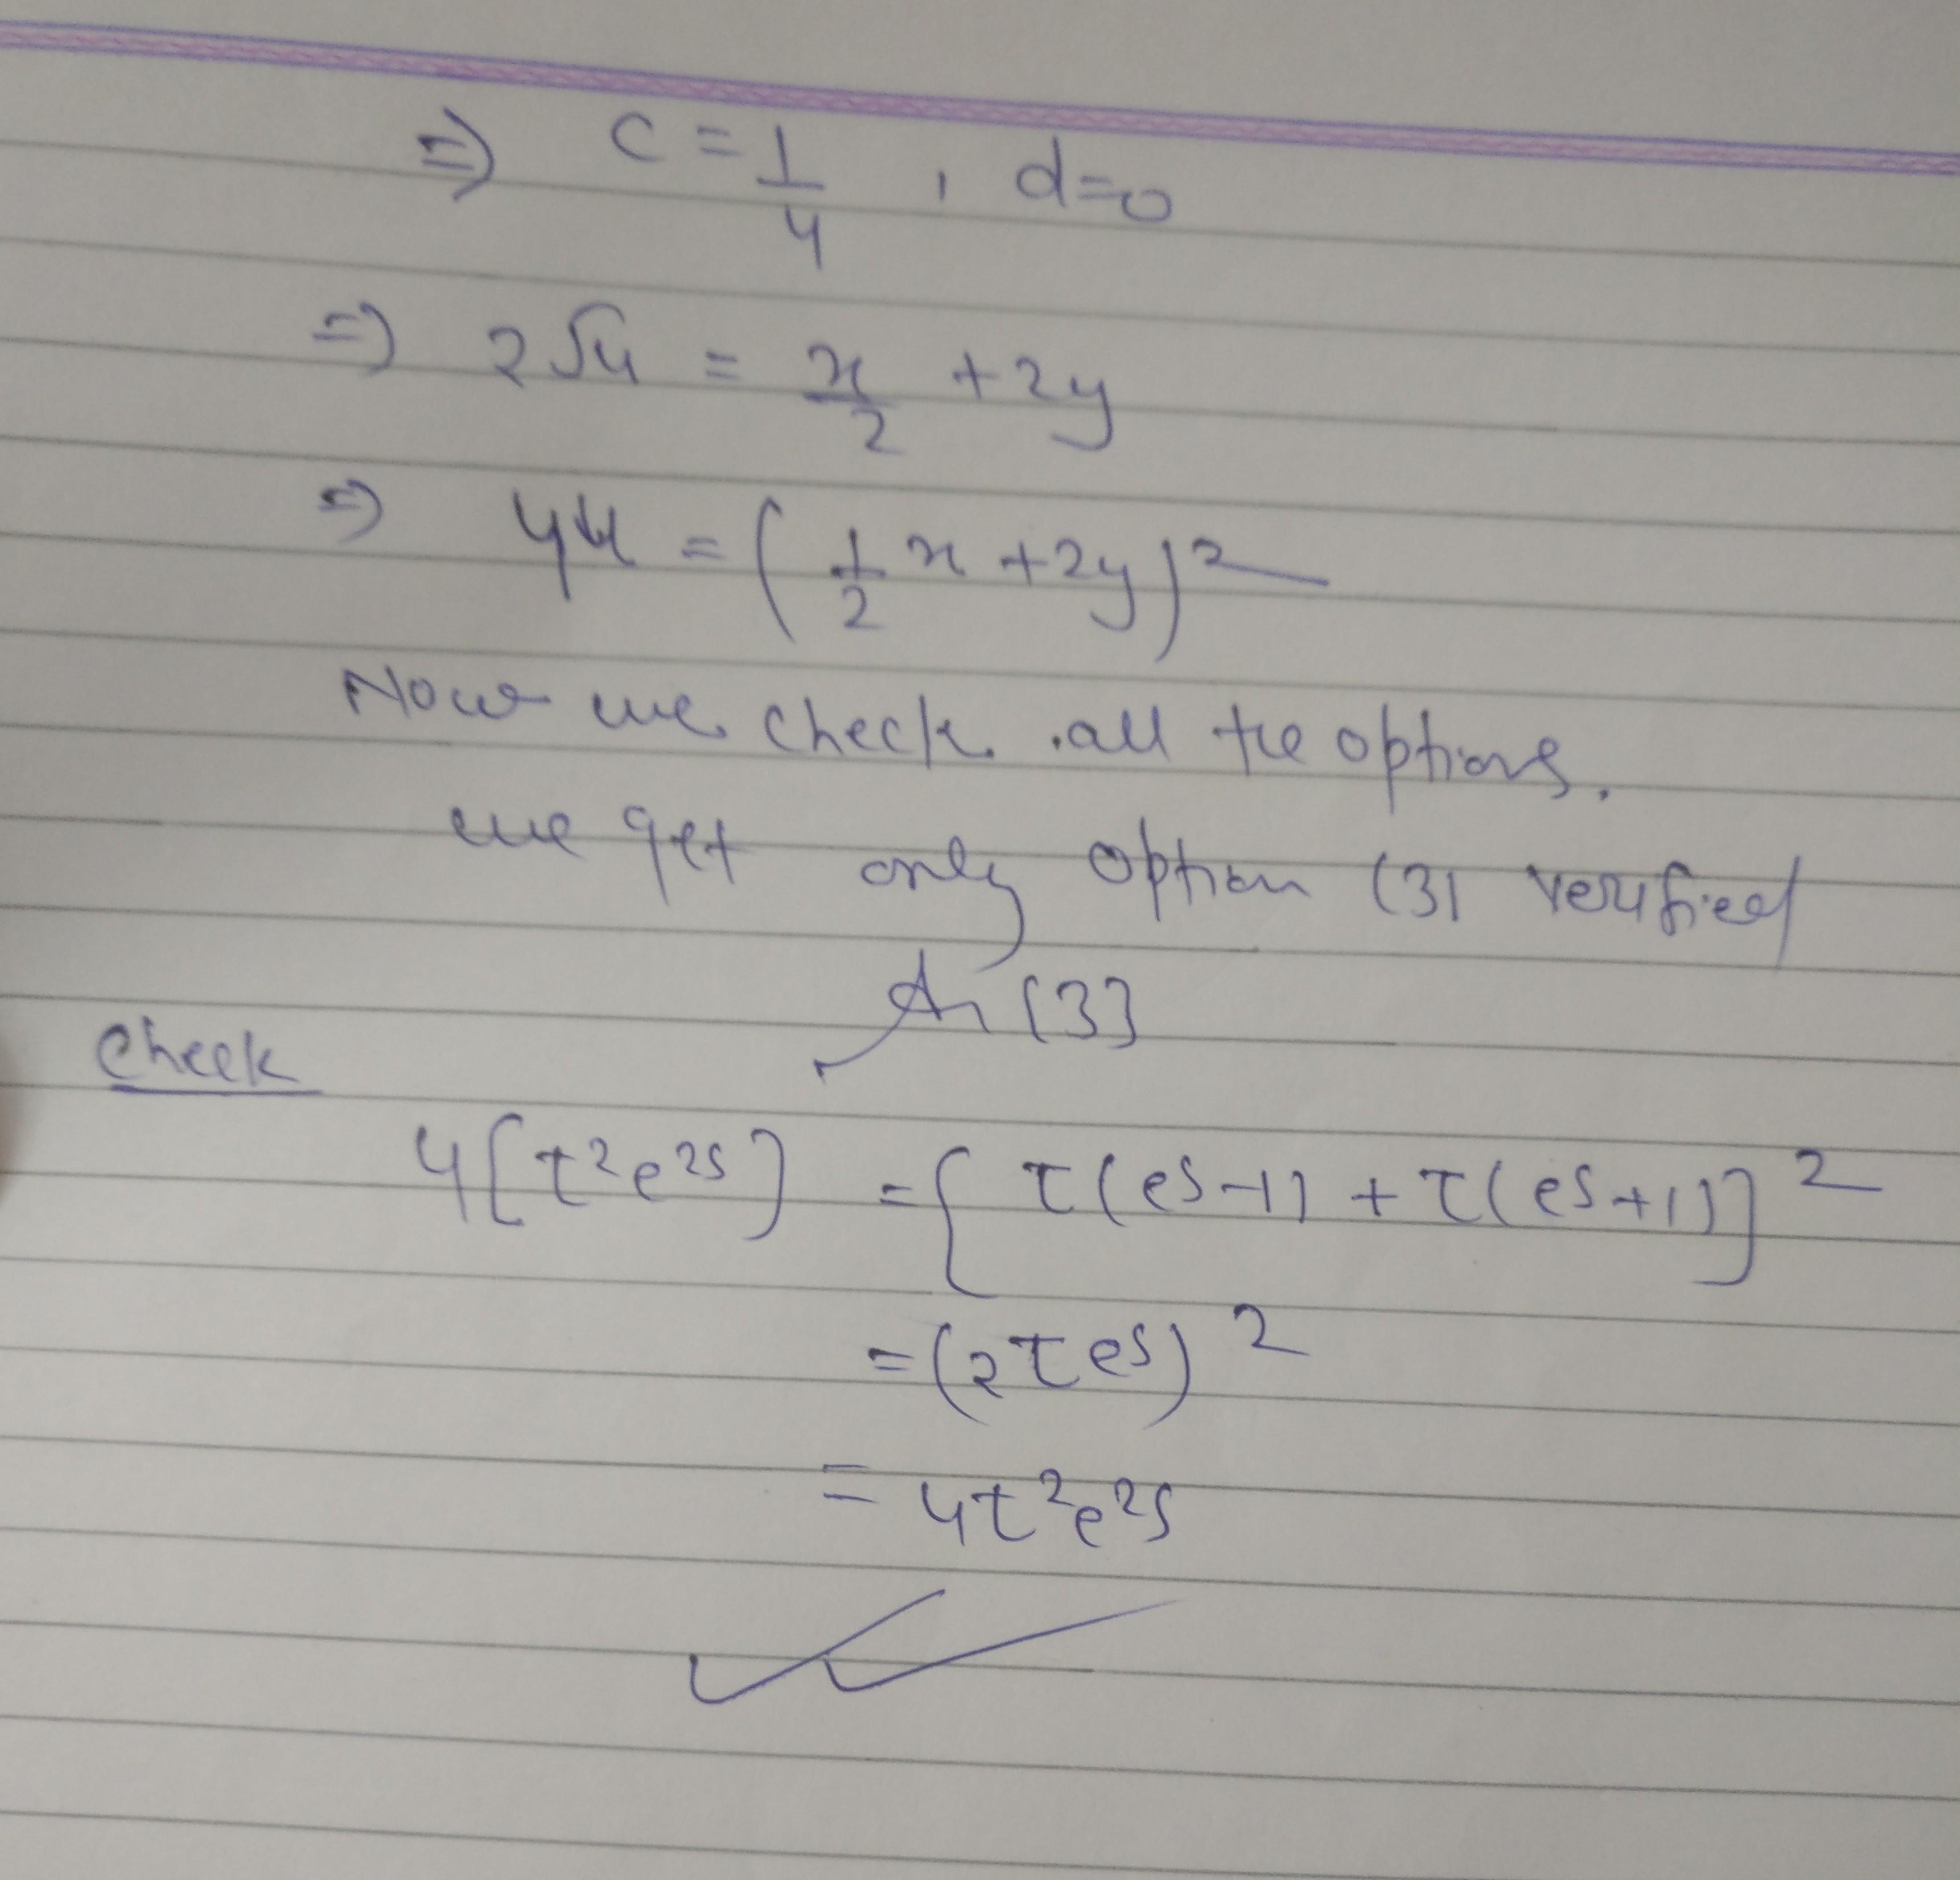 ⇒ c = 1/4 , d=0
⇒ 2√u = x/2 + 2y
⇒ 4u = (1/2 x + 2y)²
Now we check all the options.
we get only option (3) verified
An [3]
Check
4[τ²e²ˢ] = [τ(eˢ-1) + τ(eˢ+1)]²
= (2τeˢ)²
= 4τ²e²ˢ